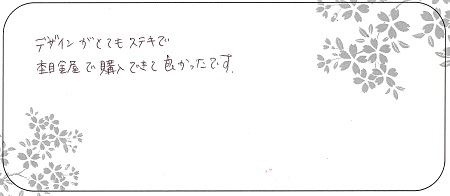 デザインがとてもステキで
杢目金屋で購入できて良かったです。